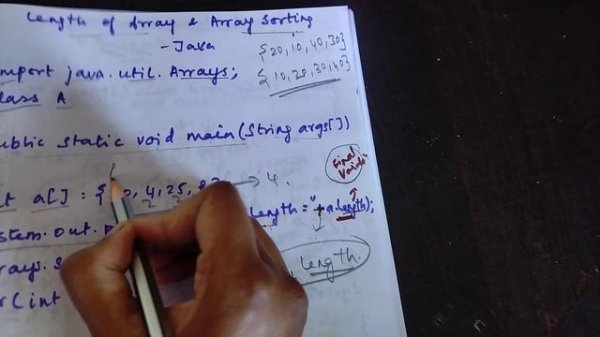 Length of Array & Array Sorting
- Java
{20, 10, 40, 30}
import java.util.Arrays;
{10, 20, 30, 40}
class A
public static void main(String args[])
final
variable
int a[] : { , 4, 25, → 4.
2
System.out.p Length = "+ a.length);
Arrays.s .length.
(int